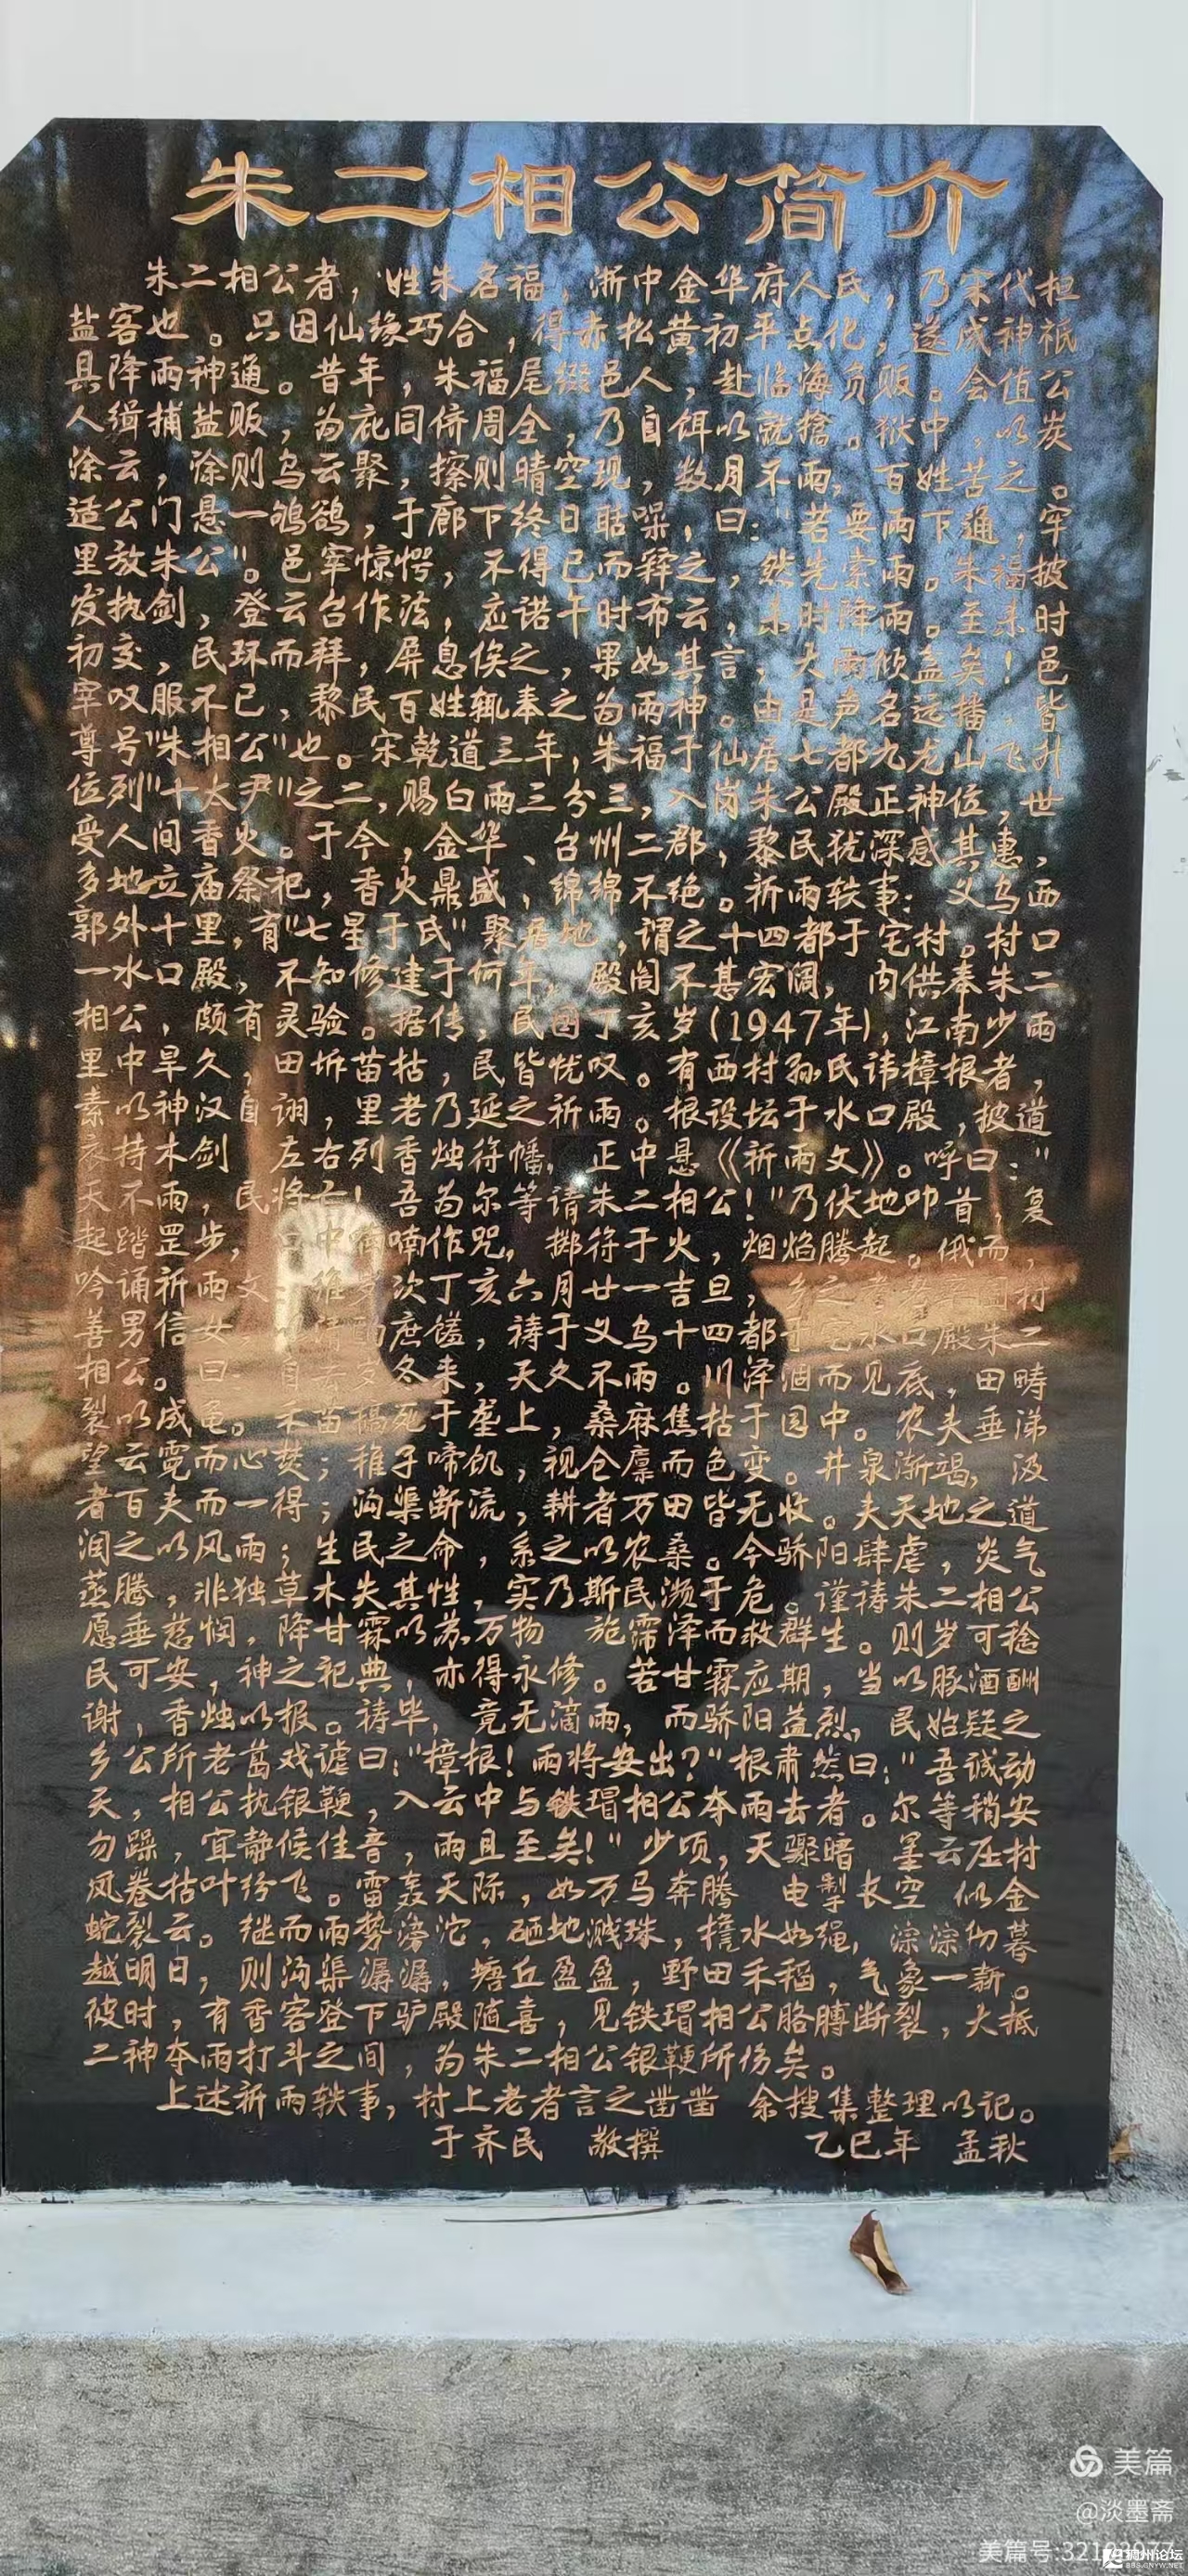 朱二相公简介
朱二相公者，姓朱名福，浙中金华府人氏，乃宋代担
盐客也。只因仙缘巧合，得赤松黄初平点化，遂成神祇
具降雨神通。昔年，朱福尾缀邑人，赴临海负贩。会值公
人缉捕盐贩，为庇同侪周全，乃自饵以就擒。狱中，以炭
涂云，涂则乌云聚，擦则晴空现，数月不雨，百姓苦之。
适公门悬一鸲鹆，于廊下终日聒噪，曰："若要雨下通，牢
里放朱公"。邑宰惊愕，不得已而释之，然先索雨。朱福披
发执剑，登云台作法，应诺午时布云，未时降雨。至未时
初交，民环而拜，屏息俟之，果如其言，大雨倾盆矣！邑
宰叹服不已，黎民百姓辄奉之为雨神。由是声名远播，皆
尊号"朱相公"也。宋乾道三年，朱福于仙居七都九龙山飞升
位列"十大尹"之二，赐白雨三分三，入岗朱公殿正神位，世
受人间香火。于今，金华、台州二郡，黎民犹深感其惠，
多地立庙祭祀，香火鼎盛，绵绵不绝。祈雨轶事：义乌西
郭外十里，有"七星于氏"聚居地，谓之十四都于宅村。村口
一水口殿，不知修建于何年，殿阁不甚宏阔，内供奉朱二
相公，颇有灵验。据传，民国丁亥岁(1947年)，江南少雨
里中旱久，田坼苗枯，民皆忧叹。有西村孙氏讳樟根者，
素以神汉自诩，里老乃延之祈雨。根设坛于水口殿，披道
衣持木剑 左右列香烛符幡，正中悬《祈雨文》。呼曰："
天不雨，民将亡！吾为尔等请朱二相公！"乃伏地叩首，复
起踏罡步，口中喃喃作咒，掷符于火，烟焰腾起。俄而，
吟诵祈雨文：维岁次丁亥六月廿一吉旦，
善男信女 庶馐，祷于义乌十四都于宅水口殿朱二
相公。曰：自去岁冬来，天久不雨。川泽涸而见底，田畴
裂以成龟。禾苗槁死于垄上，桑麻焦枯于园中。农夫垂涕
望云霓而心焚；稚子啼饥，视仓廪而色变。井泉渐竭，汲
者百夫而一得；沟渠断流，耕者万田皆无收。夫天地之道
润之以风雨；生民之命，系之以农桑。今骄阳肆虐，炎气
蒸腾，非独草木失其性，实乃斯民濒于危。谨祷朱二相公
愿垂慈悯，降甘霖以苏万物 施霈泽而救群生。则岁可稔
民可安，神之祀典，亦得永修。若甘霖应期，当以豚酒酬
谢，香烛以报。祷毕，竟无滴雨，而骄阳益烈，民始疑之
乡公所老葛戏谑曰："樟根！雨将安出？"根肃然曰："吾诚动
天，相公执银鞭，入云中与铁瑁相公夺雨去者。尔等稍安
勿躁，宜静候佳音，雨且至矣！"少顷，天骤暗 墨云压村
风卷枯叶纷飞。雷轰天际，如万马奔腾 电掣长空 似金
蛇裂云。继而雨势滂沱，砸地溅珠，檐水如绳，淙淙彻暮
越明日，则沟渠潺潺，塘丘盈盈，野田禾稻，气象一新。
彼时，有香客登下驴殿随喜，见铁瑁相公胳膊断裂，大抵
二神夺雨打斗之间，为朱二相公银鞭所伤矣。
上述祈雨轶事，村上老者言之凿凿 余搜集整理以记。
于齐民 敬撰 乙巳年 孟秋
美篇
@淡墨斋
美篇号:32103977